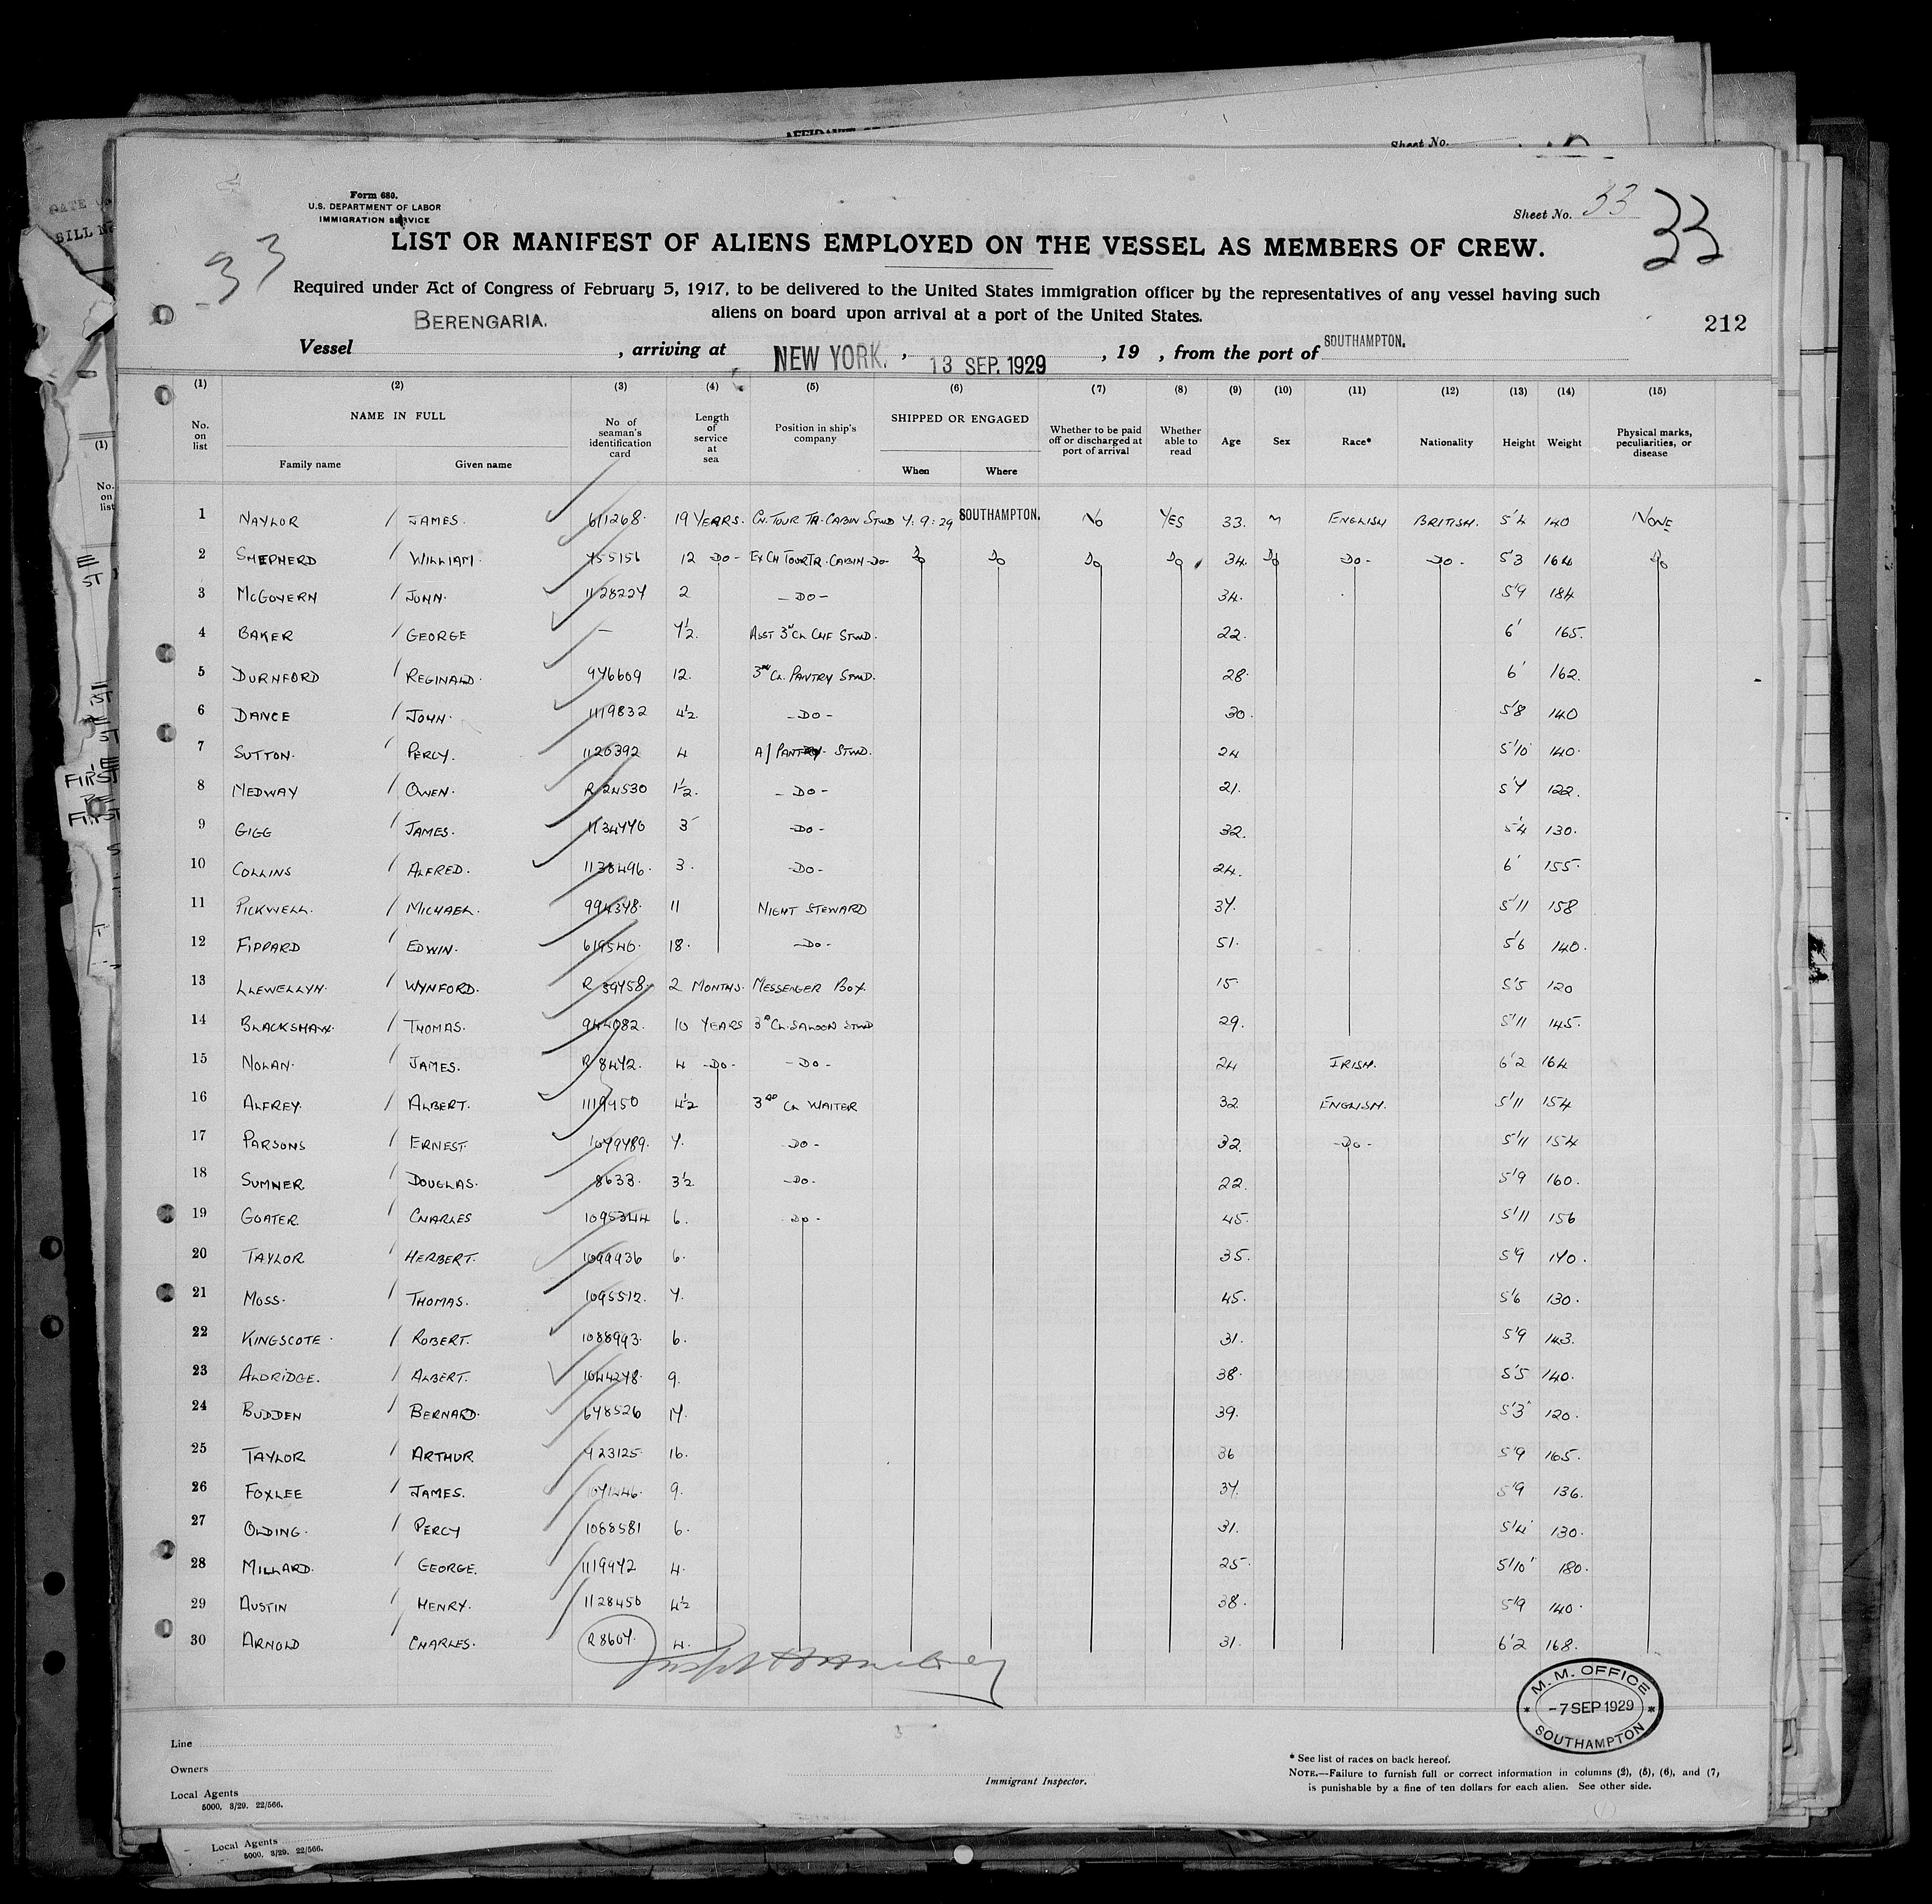 Sheet No.
Form 680.
U.S. DEPARTMENT OF LABOR
IMMIGRATION SERVICE
Sheet No. 33
33
33
LIST OR MANIFEST OF ALIENS EMPLOYED ON THE VESSEL AS MEMBERS OF CREW.
Required under Act of Congress of February 5, 1917, to be delivered to the United States immigration officer by the representatives of any vessel having such
aliens on board upon arrival at a port of the United States.
212
Vessel BERENGARIA. , arriving at NEW YORK. , 13 SEP. 1929 , 19 , from the port of SOUTHAMPTON.
(1) (2) (3) (4) (5) (6) (7) (8) (9) (10) (11) (12) (13) (14) (15)
No. on list NAME IN FULL Family name Given name No of seaman's identification card Length of service at sea Position in ship's company SHIPPED OR ENGAGED When Where Whether to be paid off or discharged at port of arrival Whether able to read Age Sex Race* Nationality Height Weight Physical marks, peculiarities, or disease
1 NAYLOR JAMES. 611268. 19 YEARS. CH. TOUR TH. CABIN STWD 7.9.29 SOUTHAMPTON. NO YES 33. M ENGLISH BRITISH. 5'4 140 NONE
2 SHEPHERD WILLIAM. 755156 12 -DO- EX CH TOUR TR. CABIN -DO- DO DO DO DO 34. DO -DO- -DO- 5'3 164 DO
3 MCGOVERN JOHN. 1128227 2 -DO- 34. 5'9 184
4 BAKER GEORGE - 7½. ASST 3RD CL CHF STWD. 22. 6' 165.
5 DURNFORD REGINALD. 976609 12. 3RD CL. PANTRY STWD. 28. 6' 162.
6 DANCE JOHN. 1119832 4½. -DO- 30. 5'8 140
7 SUTTON. PERCY. 1120392 4 A/PANTRY STWD. 24 5'10 140.
8 MEDWAY OWEN. R 24530 1½. -DO- 21. 5'7 122.
9 GIGG JAMES. 1134770 3 -DO- 32. 5'4 130.
10 COLLINS ALFRED. 1138496. 3. -DO- 24. 6' 155.
11 PICKWELL. MICHAEL. 994378. 11 NIGHT STEWARD 37. 5'11 158
12 FIPPARD EDWIN. 619540. 18. -DO- 51. 5'6 140.
13 LLEWELLYN. WYNFORD. R 39758. 2 MONTHS. MESSENGER BOY. 15. 5'5 120
14 BLACKSHAW. THOMAS. 944082. 10 YEARS 3RD CL. SALOON STWD 29. 5'11 145.
15 NOLAN. JAMES. R 8472. 4 -DO- -DO- 24 IRISH. 6'2 164
16 ALFREY. ALBERT. 1119750 4½ 3RD CL WAITER 32 ENGLISH. 5'11 154
17 PARSONS ERNEST 1079789. 7. -DO- 32. -DO- 5'11 154
18 SUMNER DOUGLAS. 8633. 3½ -DO- 22. 5'9 160.
19 GOATER CHARLES 1095344 6. DO- 45. 5'11 156
20 TAYLOR HERBERT. 1099936 6. 35. 5'9 170.
21 MOSS. THOMAS. 1095512. 7. 45. 5'6 130.
22 KINGSCOTE. ROBERT. 1088993. 6. 31. 5'9 143.
23 ALDRIDGE. ALBERT. 1044278. 9. 38. 5'5 140.
24 BUDDEN BERNARD. 678526 17. 39. 5'3 120.
25 TAYLOR ARTHUR 723125. 16. 36 5'9 165.
26 FOXLEE JAMES. 1071446. 9. 37. 5'9 136.
27 OLDING. PERCY 1088581 6. 31. 5'4 130.
28 MILLARD. GEORGE. 1119772 4. 25. 5'10 180.
29 AUSTIN HENRY. 1128450 4½ 38. 5'9 140.
30 ARNOLD CHARLES. R 8607. 4. 31. 6'2 168.
M. M. OFFICE
-7 SEP 1929
SOUTHAMPTON
Line
Owners
Local Agents
5000. 3/29. 22/566.
Immigrant Inspector.
* See list of races on back hereof.
NOTE.—Failure to furnish full or correct information in columns (2), (5), (6), and (7)
is punishable by a fine of ten dollars for each alien. See other side.
Local Agents
5000. 3/29. 22/566.